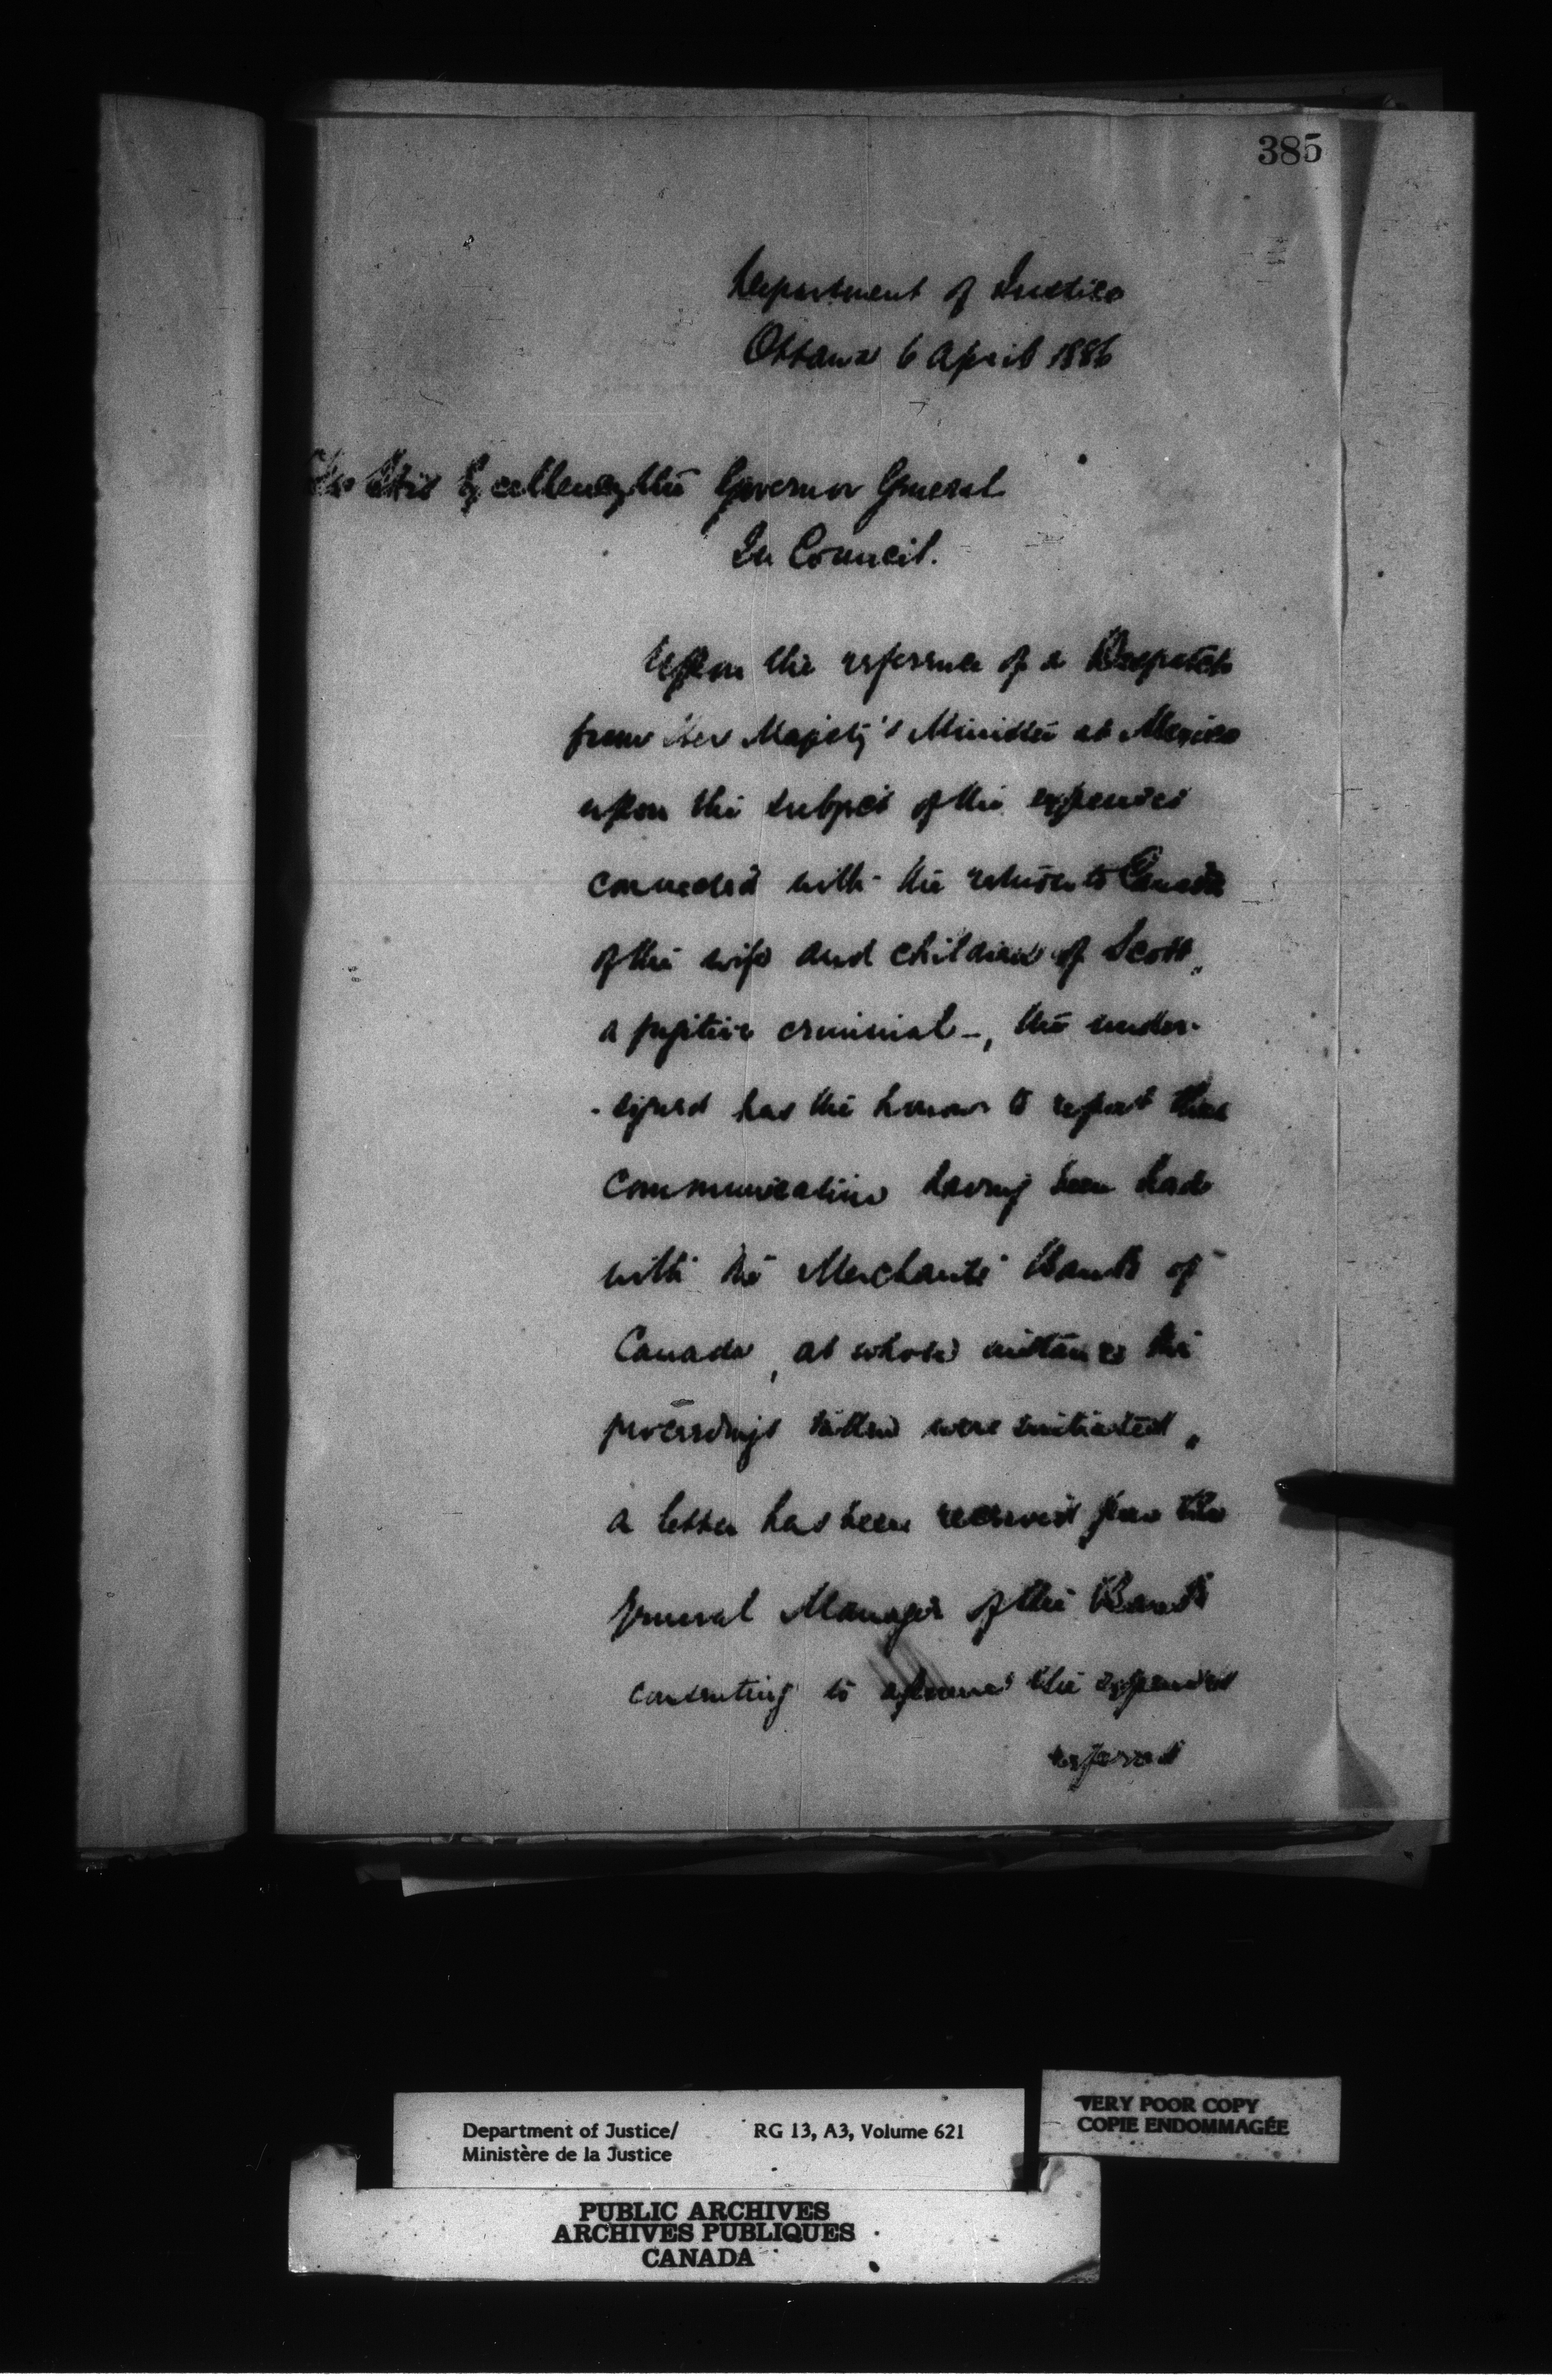 385
Department of Justice
Ottawa 6 April 1886
To His Excellency the Governor General
In Council.
Upon the reference of a Despatch
from Her Majesty's Minister at Mexico
upon the subject of the expenses
connected with the return to Canada
of the wife and children of Scott,
a fugitive criminal -, the under-
-signed has the honour to report that
communication having been had
with the Merchants' Bank of
Canada, at whose instance the
proceedings taken were initiated,
a letter has been received from the
General Manager of the Bank
consenting to the expenses
referred
Department of Justice/ RG 13, A3, Volume 621
Ministère de la Justice
VERY POOR COPY
COPIE ENDOMMAGÉE
PUBLIC ARCHIVES
ARCHIVES PUBLIQUES
CANADA